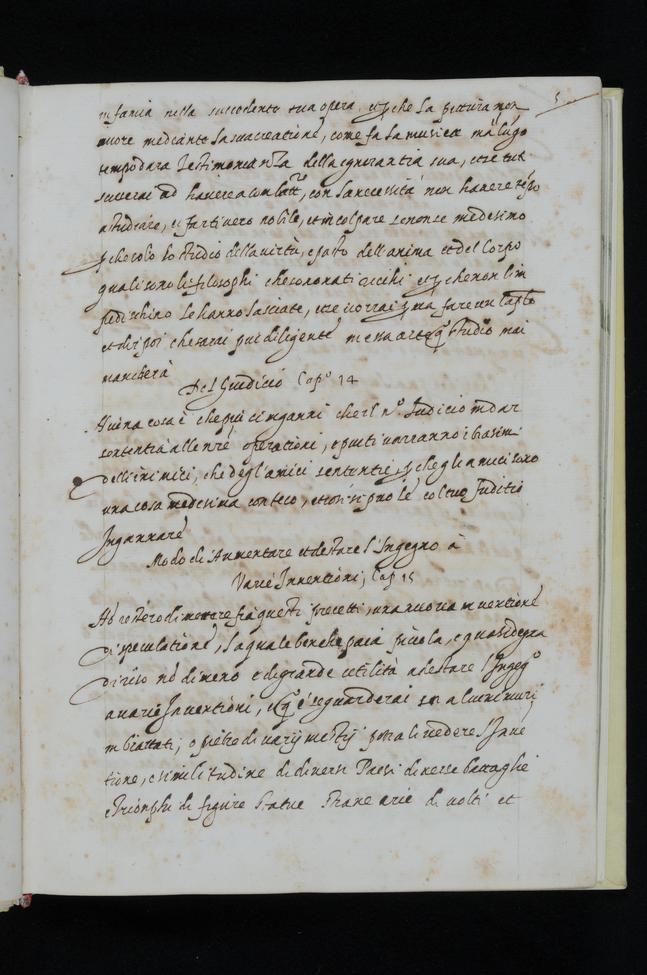 infamia nella succedente tua opera, et che la pittura non
muore mediante la sua creatione, come fa la musica mà lūgo
tempo dara Testimonianza della ignorantia sua, et se tu
scuserai
havere a combattʳᵉ, con la necessità non havere tēpo
a studiare, e farti vero nobile, et incolpare se non se medesimo
che solo lo studio della virtù, e pasto dell'anima et del Corpo
quali sono li filosophi che sono nati ricchi et che non l'im
pedischino le hanno lasciate,
et di poi che sarai piu diligente in essa arte studio mai
mancherà
Del Giudicio Cap.º 14
Niuna cosa è che piu ci inganni che il nº. Judicio in dar
sententia alle nr̄e operationi, e piu ti varranno i biasimi
delli inimici, che degl'amici sententie che gli amici sono
una cosa medesima con teco, et così si può le col tuo Juditio
Ingannare
Modo di Aumentare et destare l'Ingegno à
Varie Inventioni, Cap 15
Nō resterò di mettere fra questi precetti, una nuova inventione
di speculatione, la quale benche paia piccola, e quasi degna
di riso nō dimeno e di grande utilità a destare l'Ingegº
a varie Inventioni, et q̄ é se guarderai in alcuni muri
imbrattati, o pietre di varij misti potrai vedere l'Inve
tione, e similitudine di diversi Paesi diverse battaglie
e Trionphi di figure statue strane arie di volti et